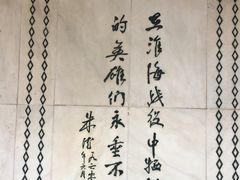 在淮海战役中牺
的英雄们永垂不
朱德